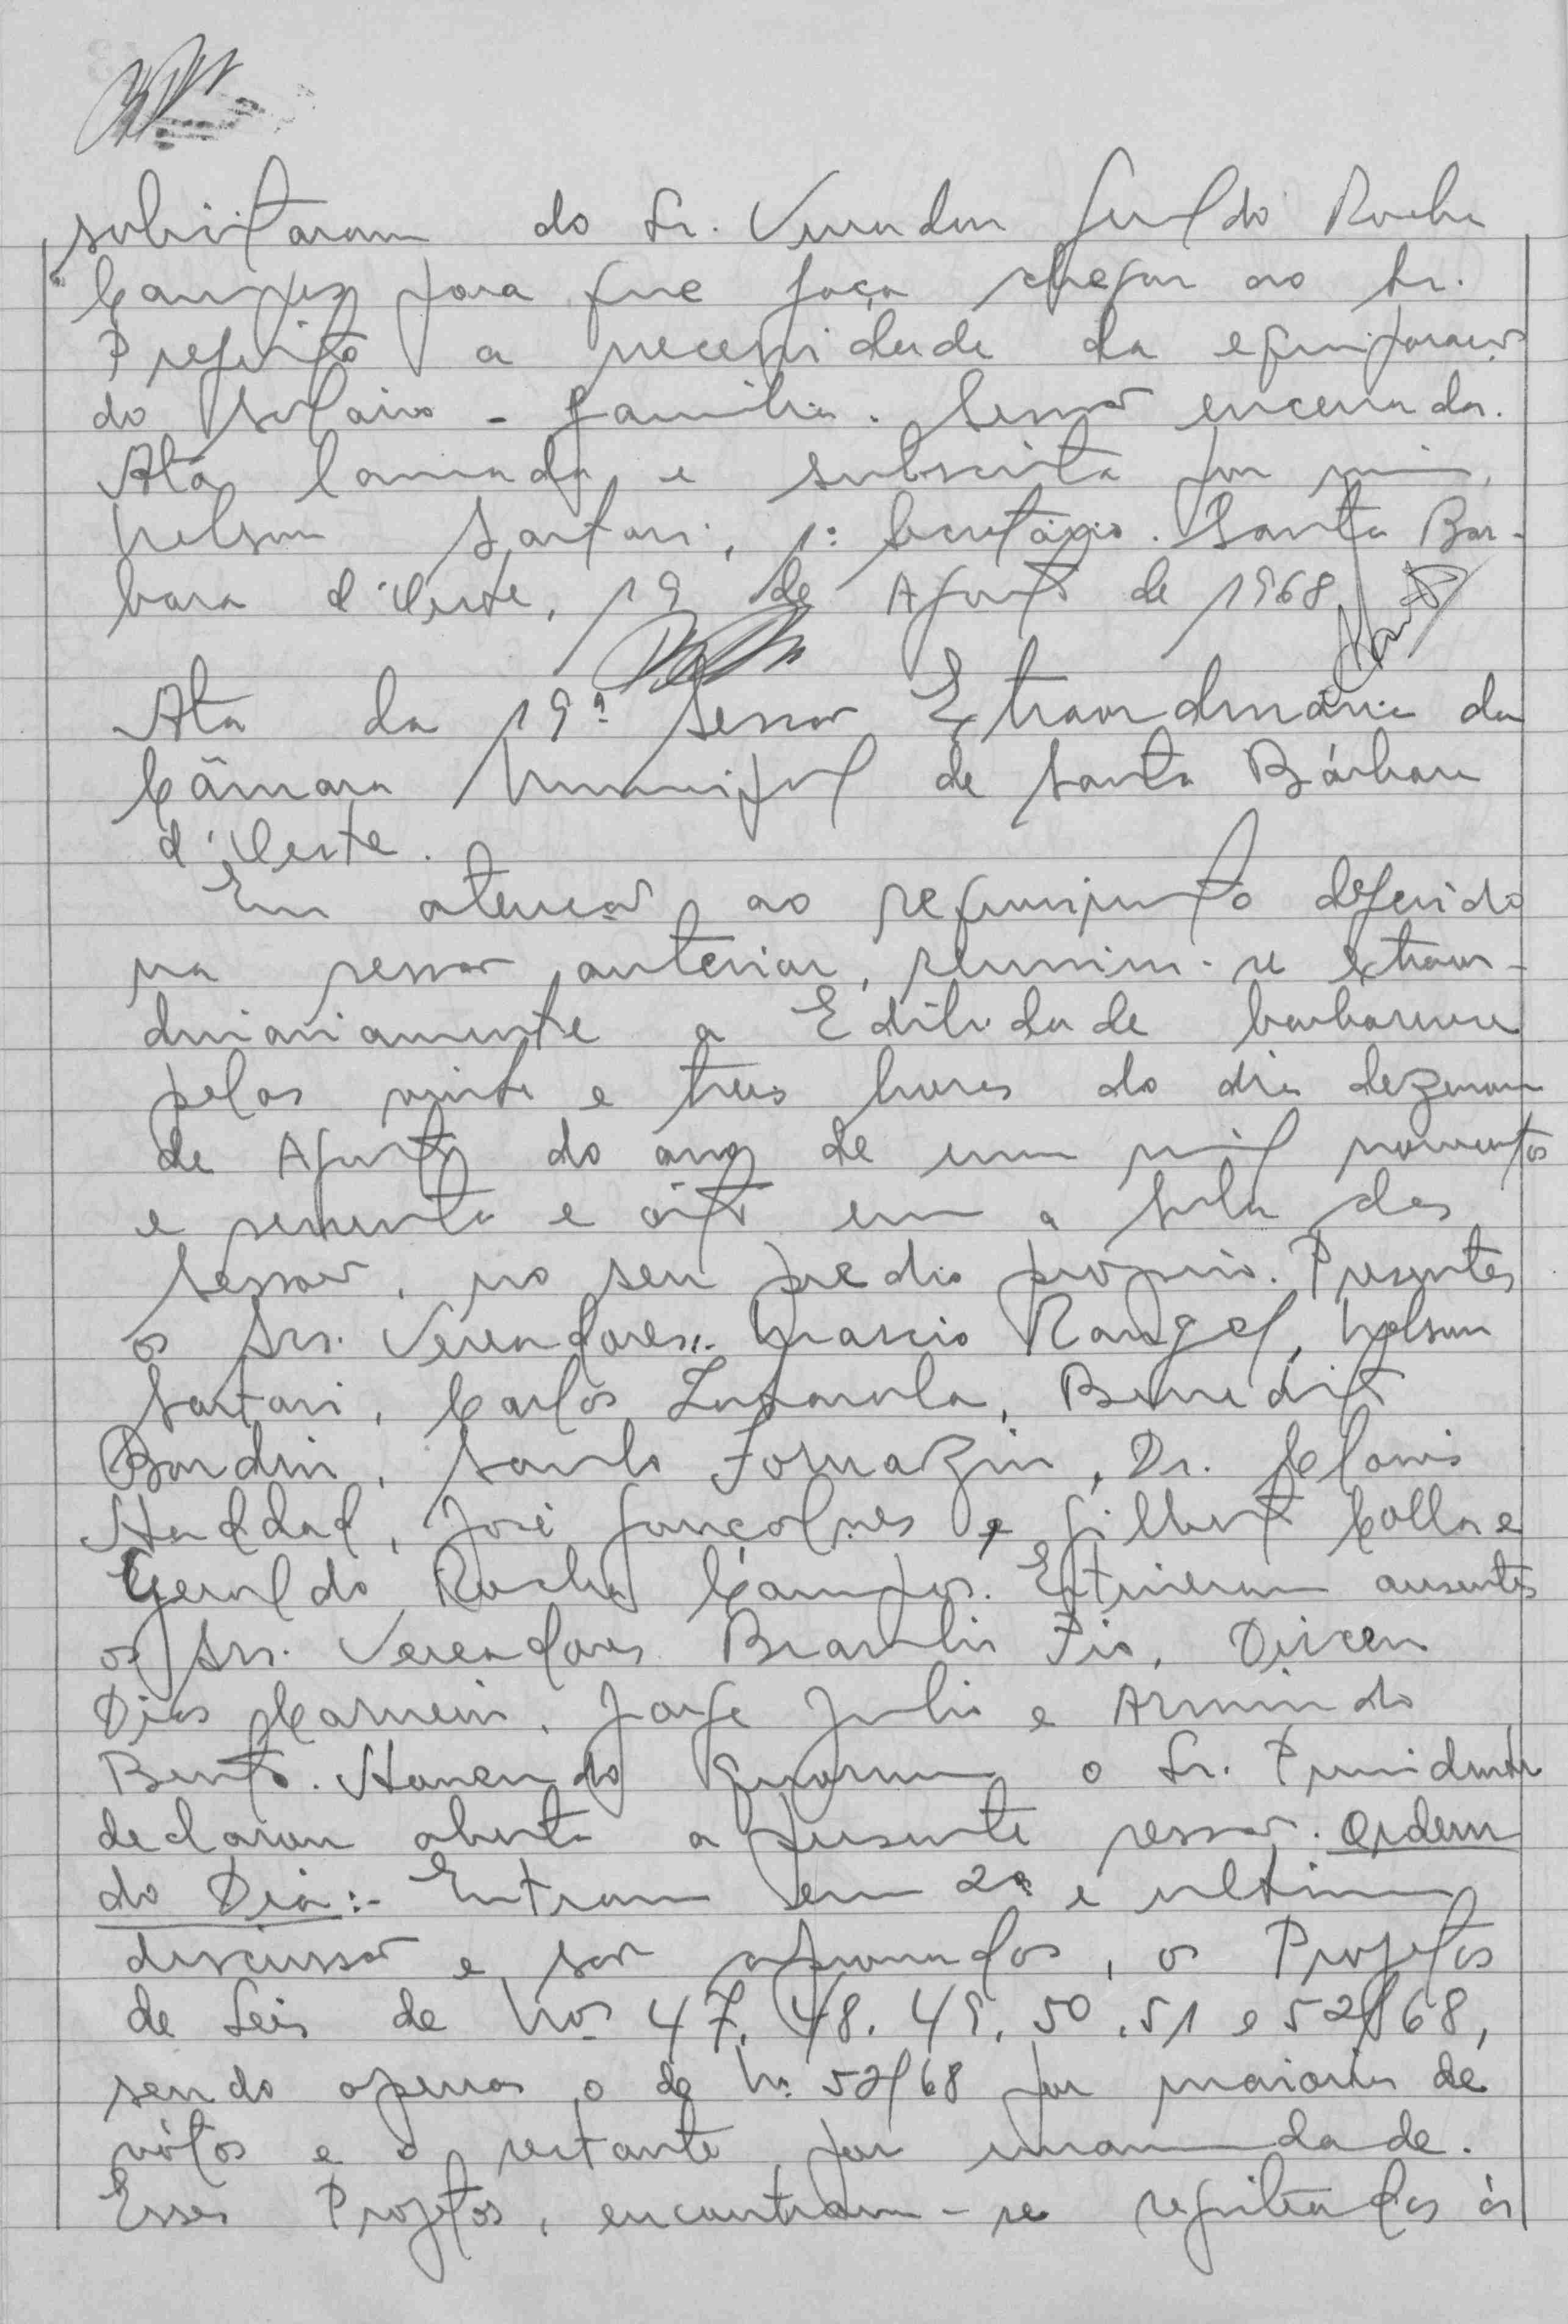 solicitaram do Sr. Vereador Geraldo Rocha
Campos para que faça chegar ao Sr.
Prefeito a necessidade da equiparação
do salário-família. Sessão encerrada.
Ata lavrada e subscrita por mim,
Nelson Sartori, 1º Secretário. Santa Bar-
bara d'Oeste, 19 de Agosto de 1968
Ata da 19ª Sessão Extraordinária da
Câmara Municipal de Santa Bárbara
d'Oeste.
Em atenção ao requerimento deferido
na sessão anterior, reuniu-se extraor-
dinariamente a Edilidade barbarense
pelas vinte e tres horas do dia dezenove
de Agosto do ano de um mil novecentos
e sessenta e oito em a sala das
Sessões, no seu predio próprio. Presentes
os Srs. Vereadores:- Marcio Rangel, Nelson
Sartori, Carlos Lazarola, Benedito
Bordin, Santo Fornazin, Dr. Clovis
Haddad, José Gonçalves e Gilberto Colla e
Geraldo Rocha Campos. Estiveram ausentes
os Srs. Vereadores Brasilio Pio, Dirceu
Dias Carneiro, Jorge Julio e Armindo
Bento. Havendo quorum o Sr. Presidente
declarou aberta a presente sessão. Ordem
do Dia:- Entram em 2ª e ultima
discussão e são aprovados, os Projetos
de Leis de Nos 47, 48, 49, 50, 51 e 52/68,
sendo apenas o de Nº 52/68 por maioria de
vótos e o restante por unanimidade.
Esses Projetos, encontram-se registrados ás